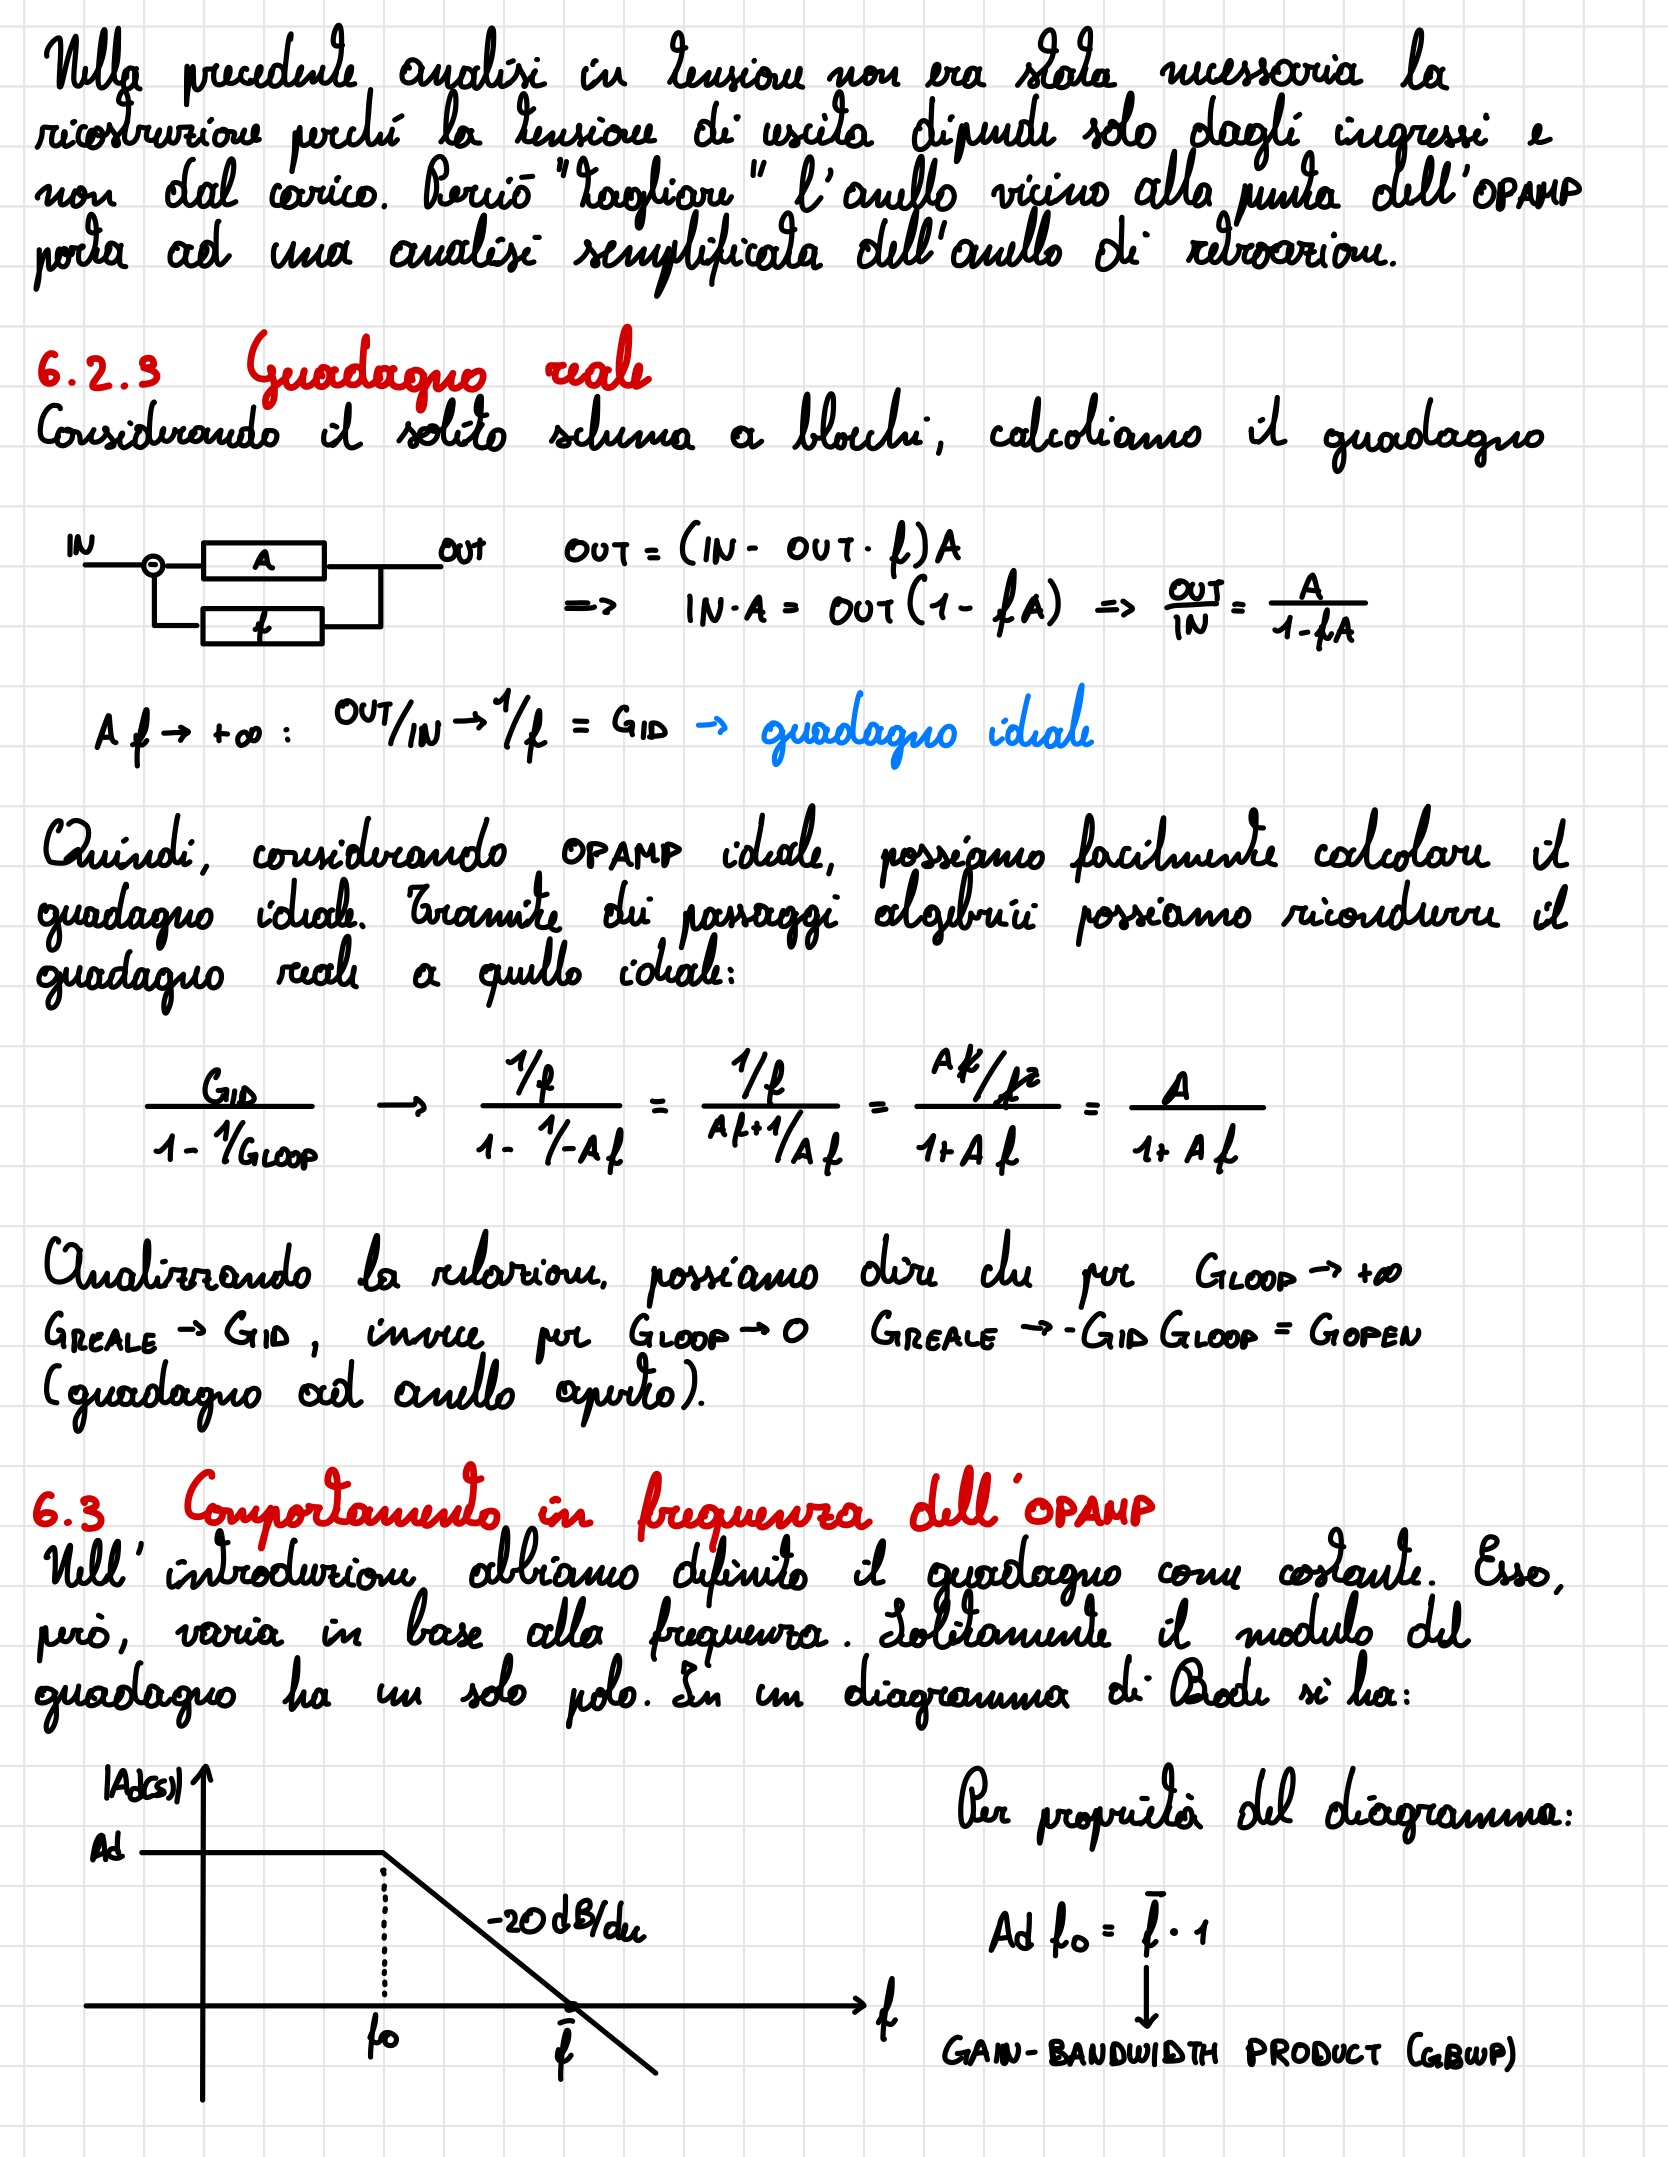 Nella precedente analisi in tensione non era stata necessaria la
ricostruzione perché la tensione di uscita dipende solo dagli ingressi e
non dal carico. Perciò "tagliare" l'anello vicino alla punta dell'OPAMP
porta ad una analisi semplificata dell'anello di retroazione.
6.2.3 Guadagno reale
Considerando il solito schema a blocchi, calcoliamo il guadagno
IN A OUT OUT = (IN - OUT · f)A
f => IN·A = OUT(1 - fA) => OUT/IN = A/(1-fA)
A f → +∞ : OUT/IN → 1/f = GID → guadagno ideale
Quindi, considerando OPAMP ideale, possiamo facilmente calcolare il
guadagno ideale. Tramite dei passaggi algebrici possiamo ricondurre il
guadagno reale a quello ideale:
GID/(1 - 1/GLOOP) → (1/f)/(1 - 1/-Af) = (1/f)/(Af+1/Af) = (Af/f²)/(1+Af) = A/(1+Af)
Analizzando la relazione, possiamo dire che per GLOOP → +∞
GREALE → GID, invece per GLOOP → 0 GREALE → -GID GLOOP = GOPEN
(guadagno ad anello aperto).
6.3 Comportamento in frequenza dell'OPAMP
Nell'introduzione abbiamo definito il guadagno come costante. Esso,
però, varia in base alla frequenza. Solitamente il modulo del
guadagno ha un solo polo. In un diagramma di Bode si ha:
|Ad(s)|
Per proprietà del diagramma:
Ad
-20dB/dec
Ad f0 = f̄ · 1
f
f0 f̄
GAIN-BANDWIDTH PRODUCT (GBWP)